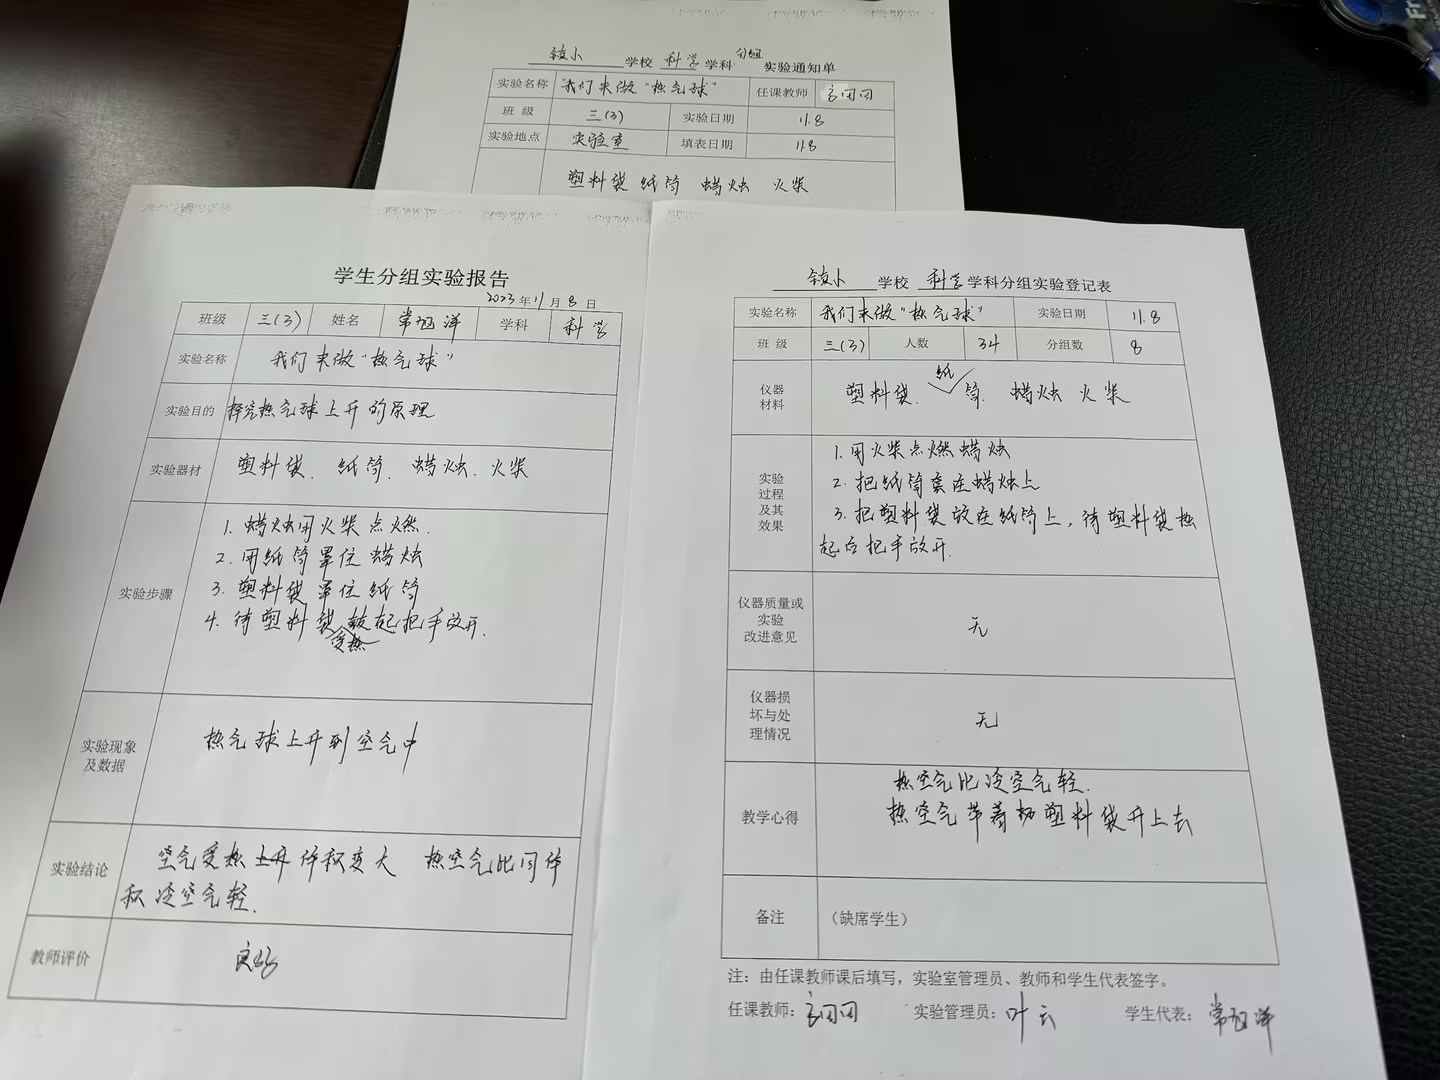 学校 科学 学科 分组 实验通知单
实验名称 "我们来做"热气球" 任课教师
班 级 三(3) 实验日期 11.8
实验地点 实验室 填表日期 11.8
塑料袋 纸筒 蜡烛 火柴
学生分组实验报告
2023年11月8日
班级 三(3) 姓名 常旭洋 学科 科学
实验名称 我们来做"热气球"
实验目的 探究热气球上升的原理
实验器材 塑料袋、纸筒、蜡烛、火柴
实验步骤
1. 蜡烛用火柴点燃.
2. 用纸筒罩住蜡烛
3. 塑料袋罩住纸筒
4. 待塑料袋鼓起把手放开.
受热
实验现象
及数据
热气球上升到空气中
实验结论
空气受热上升体积变大 热空气比同体
积冷空气轻.
教师评价 良好
学校 科学 学科分组实验登记表
实验名称 我们来做"热气球" 实验日期 11.8
班 级 三(3) 人数 34 分组数 8
仪器
材料
塑料袋. 纸筒. 蜡烛 火柴
实验
过程
及其
效果
1. 用火柴点燃蜡烛
2. 把纸筒套在蜡烛上
3. 把塑料袋放在纸筒上,待塑料袋热
起后把手放开.
仪器质量或
实验
改进意见
无
仪器损
坏与处
理情况
无
教学心得
热空气比冷空气轻.
热空气带着塑料袋升上去
备注 (缺席学生)
注:由任课教师课后填写,实验室管理员、教师和学生代表签字。
任课教师: 实验管理员:叶云 学生代表:常旭洋